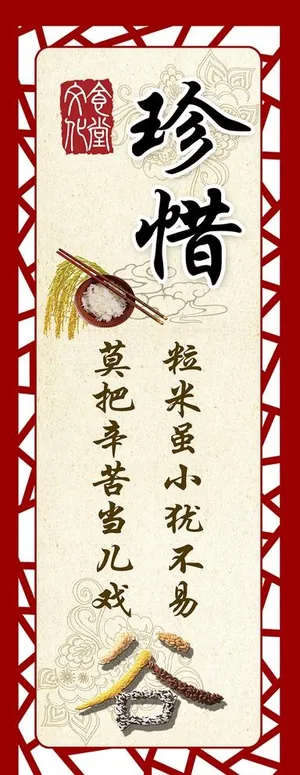 食堂
文化
珍惜
粒米虽小犹不易
莫把辛苦当儿戏
谷